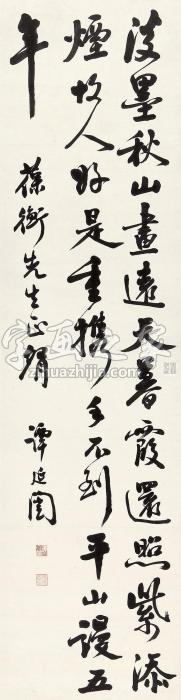 淡墨秋山畫遠天暮霞還照紫添
煙故人好是重攜手不到平山謾五
年
葆衡先生正
譚延闓
字画之家
zihuazhijia.com